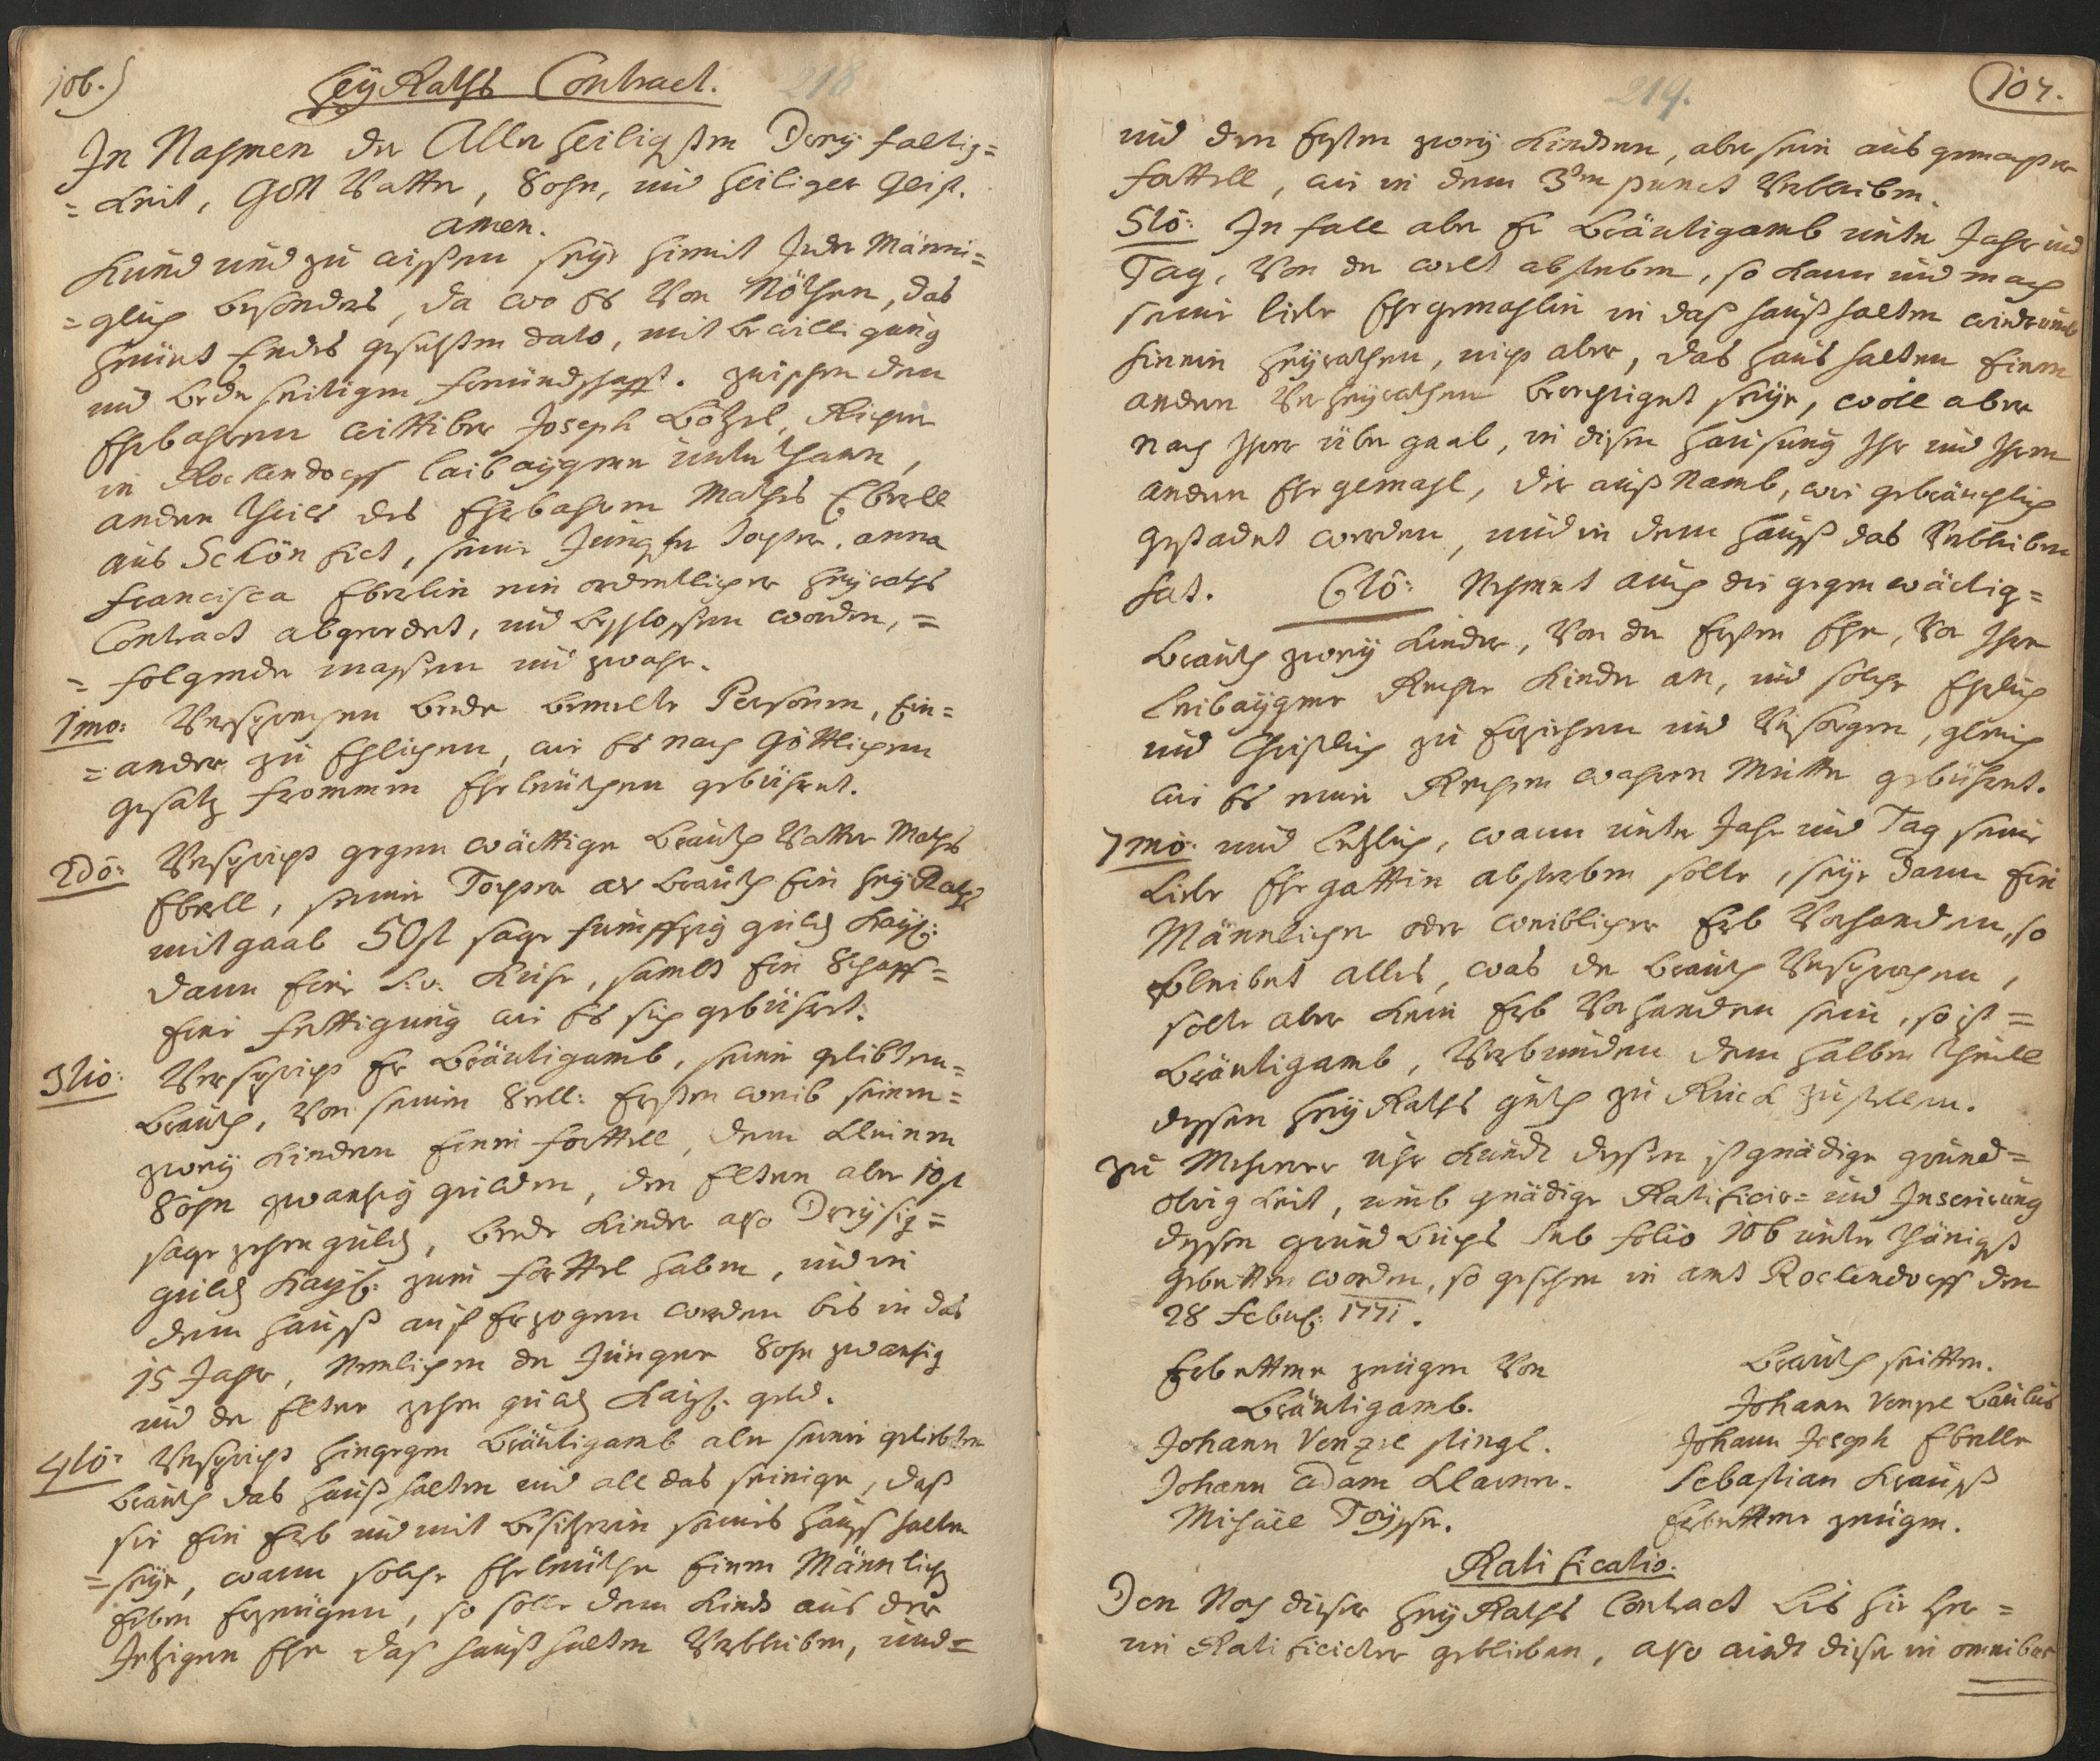 106.)
HeyRaths Contract. 218
In Nahmen der Aller heiligsten Dreyfaltig=
=keit, Gott Vatter, Sohn, und heiliger Geist.
Amen.
Kund und zu wissen seye hiemit Jeder Männi=
=glich besonders, da wo es Von Nöthen, das
heunt Endes gesetzten dato, mit bewilligung
und beederseitigen freundschafft. zwischen dem
Ehrbahren wittiber Joseph Lötzel,
in Rockendorff laibaygenen unterthann,
anderen Theils des Ehrbahren Mathes Eberll
aus Schönficht, seine Jungfer Tochter. Anna
Francisca Eberlin ein ordentlicher heyraths
Contract abgeredet, und beschlossen worden, =
= folgender massen und zwahr.
1mo: Versprechen beede bemelte Persohnen, Ein=
=ander zu Ehlichen, wie es nach Göttlichen
gesatz frommen Ehrleuthen gebühret.
2do: Verspricht gegenwärttiger brauth Vatter Mathes
Eberll, seiner Tochter als brauth Ein HeyRaths
mitgaab 50 fl sage funffzig guld Kays:
dann Eine s: v: Kuhe, sambt Ein Schaff=
Eine fertigung wie es sich gebühret.
3tio: Verspricht Er bräutigamb, seiner gelibten=
brauth, Von seinen Seell: Ersten weib seinen=
zwey Kindern Einen forttell, dem kleinen
Sohn zwantzig gulden, den Eltern aber 10 fl
sage zehen guld, beede Kinder also Dreysig=
guld Kays: zum forttel haben, und in
dem hauß auf Erzogen werden bis in das
15 Jahr, Nemlichen der Jüngere Sohn zwantzig
und der Eltere zehen guld Kays: geld.
4to: Verspricht hingegen bräutigamb aber seiner geliebten
brauth das haußhalten und all das seinige, daß
sie Ein Erb und mit besitzerin seines hauß halten
=seye, wann solche Ehrleuthe Einen Männlich
Erben Erzeugen, so solle dem Kind aus der
Jetzigen Ehe das haußhalten Verbleiben, und=
219. 107.
und den Ersten zwey Kindern, aber sein ausgemachter
forttell, wie in dem 3ten punct Verbleiben.
5to: In fall aber Er bräutigamb unter Jahr und
Tag, Von der welt absterben, so kann und mag
seine liebe Ehegemahlin in das haußhalten wiederumb
hinein heyrathen, nicht aber, das haus halten Einen
anderen Verheyrathen berechtiget seye, woll aber
nach Ihrer übergaab, in diesen Hausung Ihr und Ihren
anderen Ehegemahl, die außnamb, wie gebräuchlich
gestadet werden, und in dem hauß das Verbleiben
hat. 6to: Nehmet auch die gegenwärtig=
brauth zwey Kinder, Von der Ersten Ehe, Vor Ihre
leibaygene Rechte Kinder an, und solche Ehrlich
und Christlich zu Erziehen und Versorgen, gleich
wie es einer Rechten wahren Mutter gebühret.
7mo: und letzlich, wann unter Jahr und Tag seine
liebe Ehegattin absterben solte, seye dann Ein
Männlicher oder weiblicher Erb Vorhanden, so
bleibet alles, was der brauth Versprochen,
solte aber kein Erb Vorhanden sein, so ist =
bräutigamb, Verbunden dem halben theill
dessen heyRaths guth zu Ruck zustellen.
zu Mehrerer uhrkundt dessen ist gnädige grund=
obrigkeit, umb gnädige Ratificir= und Inserirung
dessen grundbuchs sub folio 106 unterthänigst
gebetten worden, so geschehen in amt Rockendorff den
28 Febru: 1771.
Erbettene zeugen Von brauth seitten.
bräutigamb. Johann Venzel
Johann Venzel Stingl. Johann Joseph Eberlle
Johann Adam Klarner. Sebastian Krauß
Michäel. Erbettene zeugen.
Ratificatio:
Den Nach dieser heyRaths Contract bis hieher=
un Ratificirter geblieben, also wirdt dieser in omnibus